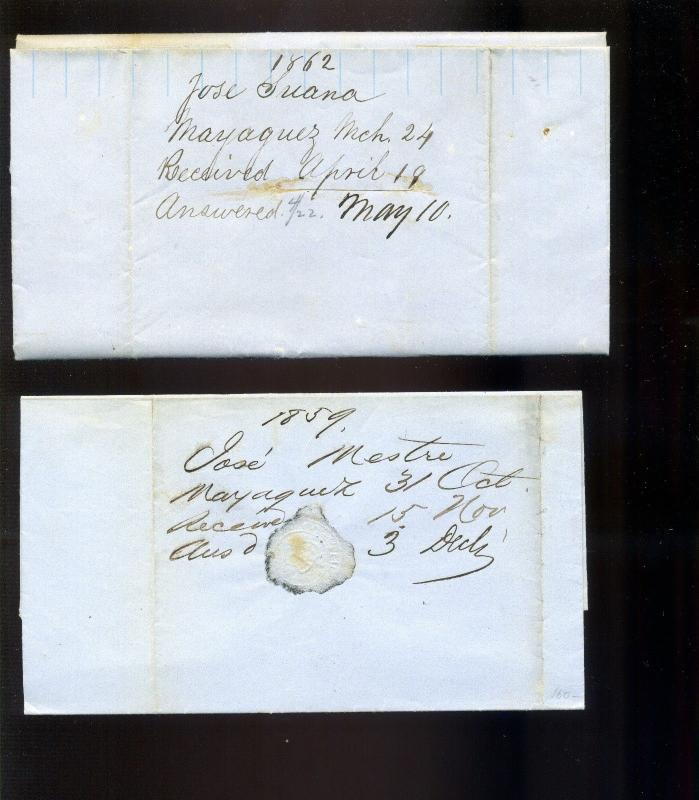 1862
José Suana
Mayaguez Mch. 24
Received April 19
Answered. 4/22. May 10.
1859.
José Mestre
Mayaguez 31 Oct.
Received 15 Nov
Ans'd 3 Decbr
160-